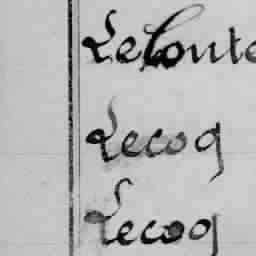 LeConte
Lecoq
Lecoq